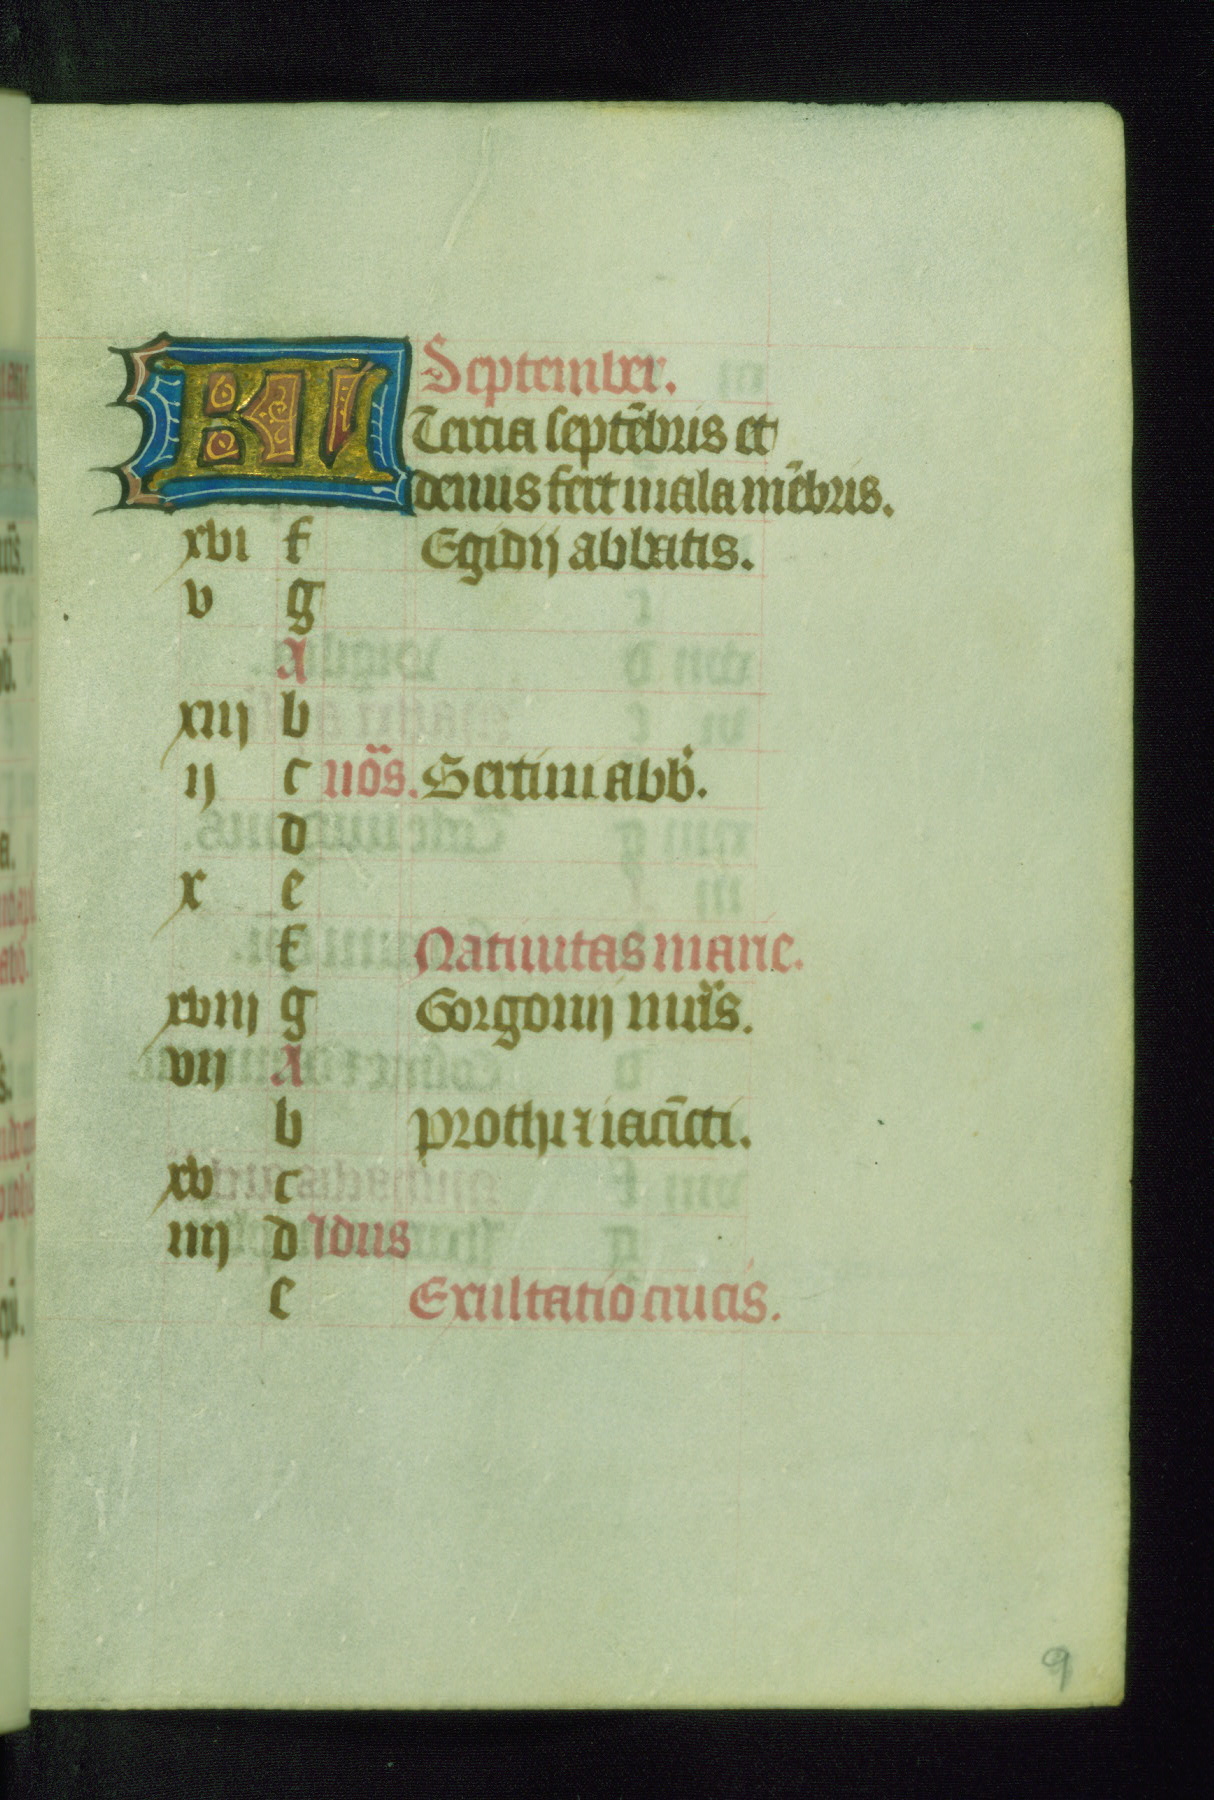 KL September.
Tertia septēbris et
denus fert mala mēbris.
xvi f Egidij abbatis.
v g
A
xiij b
ij c nōs. Bertini abb.
d
x e
f Natiuitas marie.
xviij g Gorgonij mrīs.
vij A
b prothi ⁊ iacīcti.
xv c
iiij d Idus
e Exultatio crucis.
9